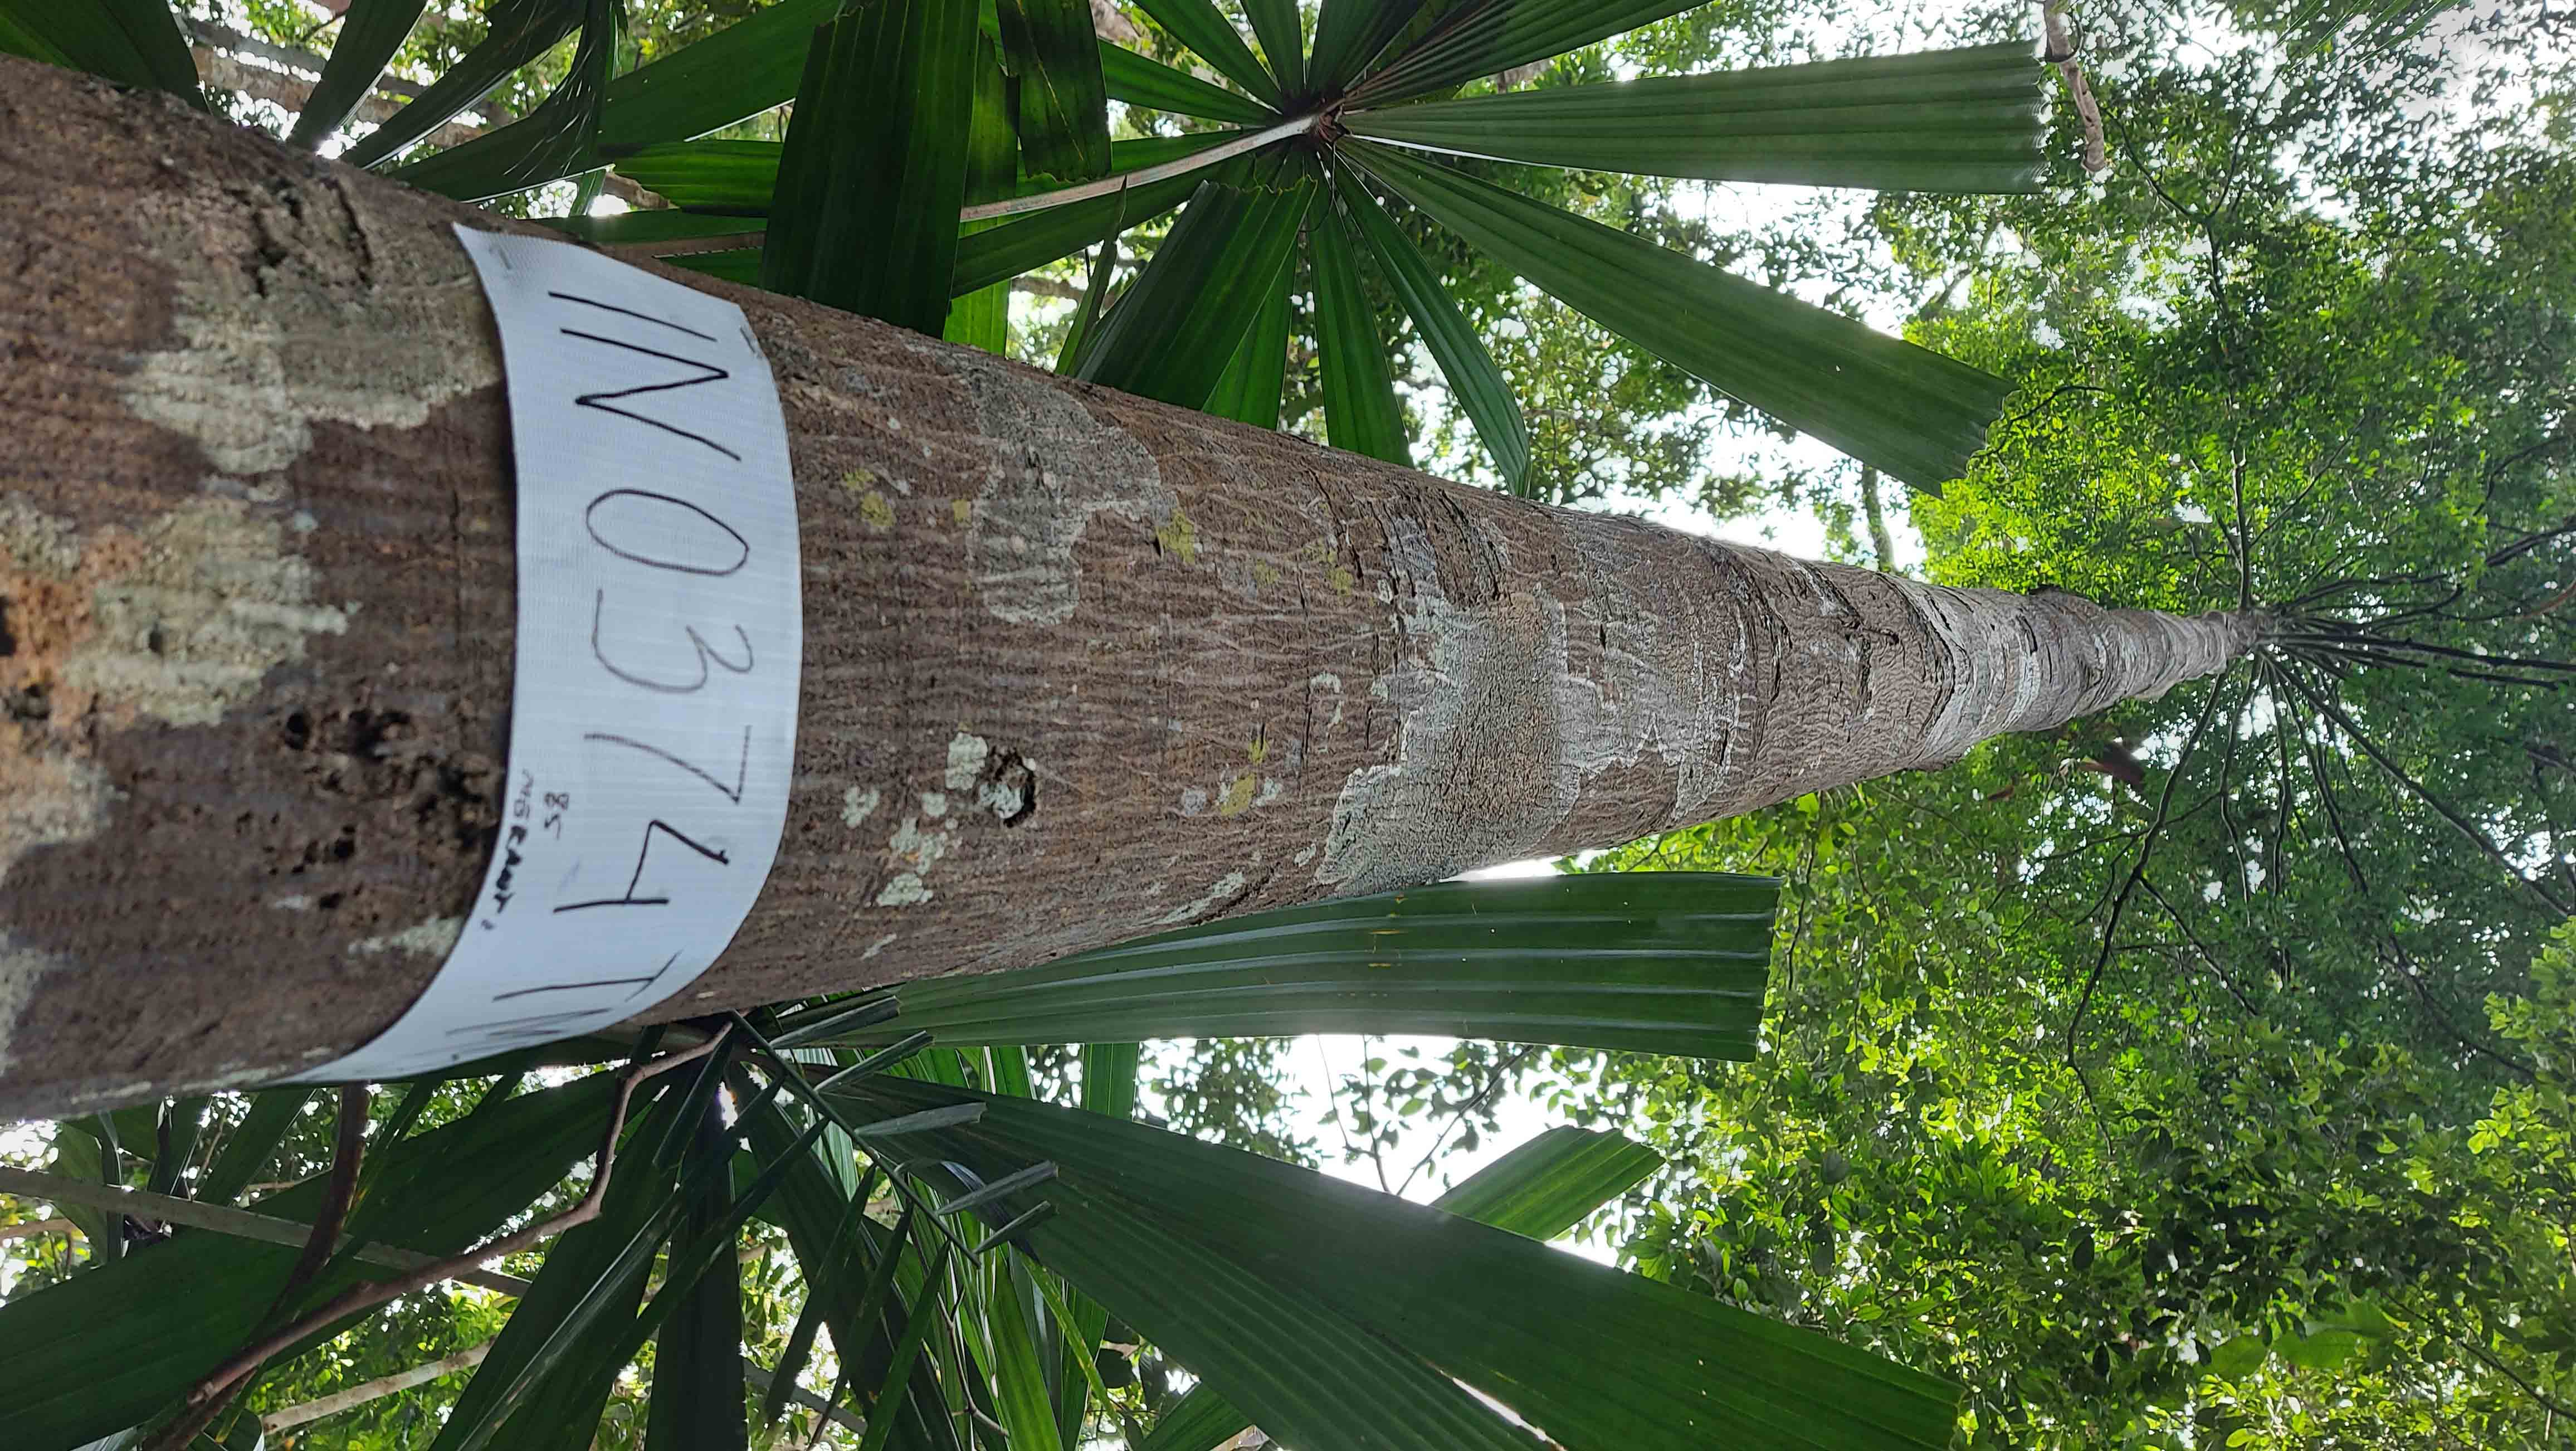 IN0374 TM
85
MERANTI